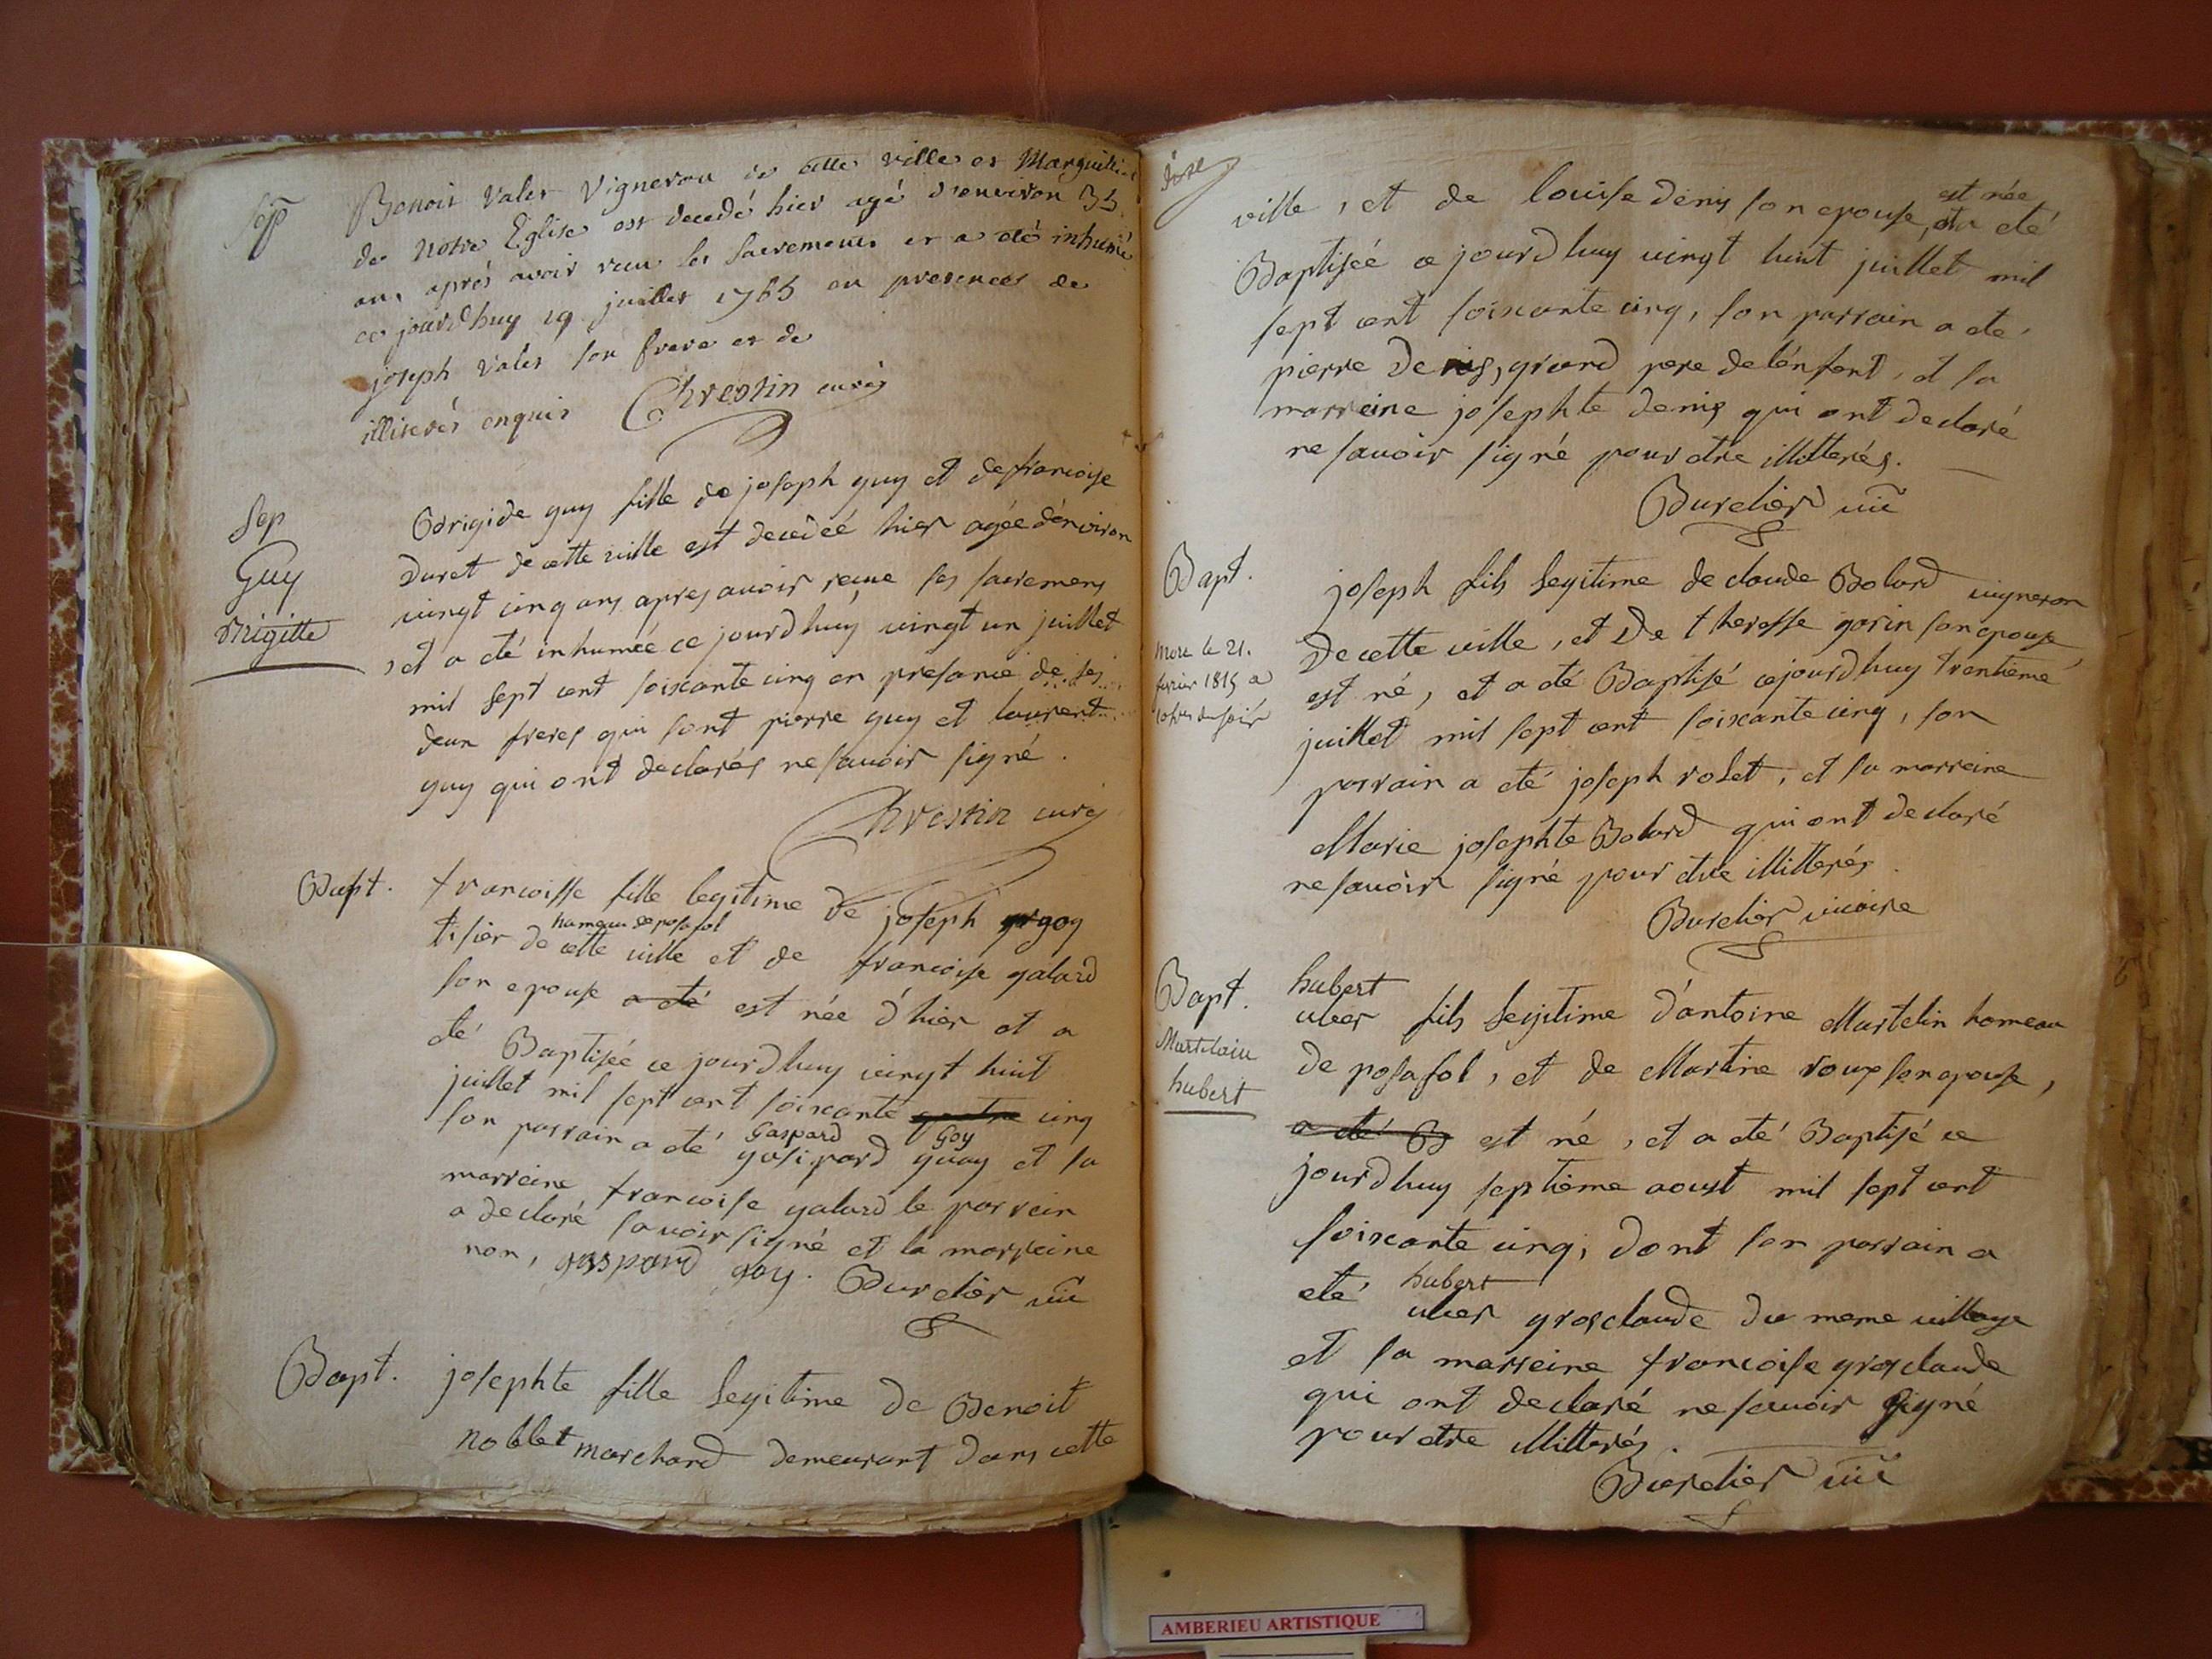 sep
Benoit Valet Vigneron de cette ville et Marguillier
de Notre Eglise est decedé hier agé d'environ 35
ans aprés avoir recu les sacrements et a été inhumé
ce jourdhuy 19 juillet 1765 en presences de
joseph Valet son frere et de
illiterés enquis Chrestin curé
Sep
Guy
Brigitte
Brigide guy fille de joseph guy et de francoise
Duret de cette ville est decedeé hier agée dénviron
vingt cinq ans apres avoir reçue ses sacremens
, et a été inhumée ce jourdhuy vingt un juillet
mil sept cent soixante cinq en presance de ses
deux freres qui sont pierre guy et laurent
guy qui ont declarés ne sauoir signé.
Chrestin curé
Bapt.
francoisse fille legitime de joseph goy
hameau de posafol
tisier de cette ville et de francoise galard
son epouse a eté est née d'hier et a
été Baptisée ce jourdhuy vingt huit
juillet mil sept cent soixante quatre cinq
Gaspard Goy
son parrain a eté gasipard guay et sa
marreine francoise galard le parrein
a declaré savoir signé et la marreine
non, gaspard goy. Burelier vic
Bapt.
josephte fille legitime de Benoit
noblet marchand demeurant dans cette
est née
ville, et de louise denis son epouse, et a eté
Baptiseé ce jourdhuy vingt huit juillet mil
sept cent soixante cinq, son parrain a eté
pierre Denis, grand pere de lénfent, et sa
marreine josephte denis qui ont declaré
ne sauoir signé pour etre illitterés.
Burelier vic
Bapt.
mort le 21.
fevrier 1815 a
10 hres du soir
joseph fils legitime de claude Bolard vigneron
De cette ville, et De theresse garin son epouse
est né, et a eté Baptisé cejourdhuy trentieme
juillet mil sept cent soixante cinq, son
parrain a eté joseph rolet, et sa marreine
Marie josephte Bolard qui ont declaré
ne sauoir signé pour etre illitterés
Burelier vicaire
Bapt.
Martelain
hubert
hubert
uber fils legitime d'antoine Martelin homeau
de posafol, et de Martine roux son epouse,
a eté B est né, et a eté Baptisé ce
jourdhuy septieme aoust mil sept cent
soixante cinq, dont son parrain a
hubert
eté uber grosclaude du meme village
et sa marreine francoise grosclaude
qui ont declaré ne sauoir signé
pour etre illitterés.
Burelier vic
AMBERIEU ARTISTIQUE